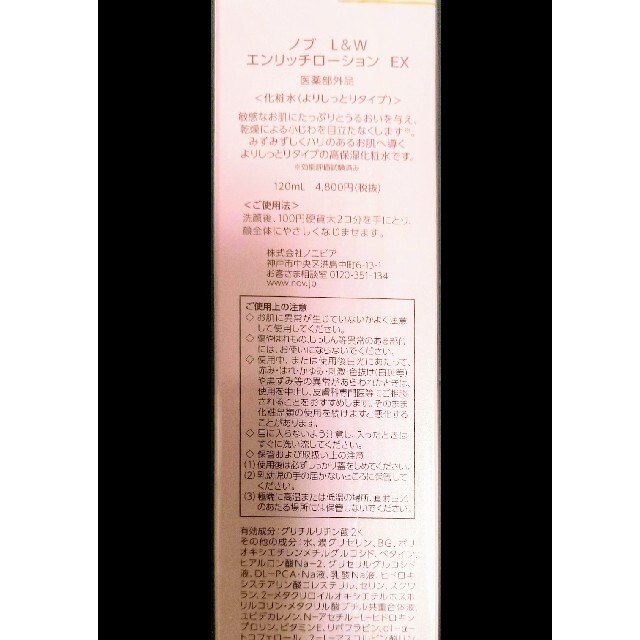 ノブ L&W
エンリッチローション EX
医薬部外品
<化粧水(よりしっとりタイプ)>
敏感なお肌にたっぷりとうるおいを与え、
乾燥による小じわを目立たなくします※。
みずみずしくハリのあるお肌へ導く
よりしっとりタイプの高保湿化粧水です。
※効能評価試験済み
120mL 4,800円(税抜)
<ご使用法>
洗顔後、100円硬貨大2コ分を手にとり、
顔全体にやさしくなじませます。
株式会社ノエビア
神戸市中央区港島中町6-13-1
お客さま相談室 0120-351-134
www.nov.jp
ご使用上の注意
◇ お肌に異常が生じていないかよく注意
して使用してください。
◇ 傷やはれもの、しっしん等異常のある部位
には、お使いにならないでください。
◇ 使用中、または使用後日光にあたって、
赤み・はれ・かゆみ・刺激・色抜け(白斑等)
や黒ずみ等の異常があらわれたときは、
使用を中止し、皮膚科専門医等にご相談
されることをおすすめします。そのまま
化粧品類の使用を続けますと悪化する
ことがあります。
◇ 目に入らないよう注意し、入ったときは
すぐに洗い流してください。
◇ 保管および取扱い上の注意
(1) 使用後は必ずしっかり蓋をしめてください。
(2) 乳幼児の手の届かないところに保管して
ください。
(3) 極端に高温または低温の場所、直射日光
のあたる場所には保管しないでください。
有効成分:グリチルリチン酸2K
その他の成分:水、濃グリセリン、BG、ポリ
オキシエチレンメチルグルコシド、ベタイン、
ヒアルロン酸Na-2、グリセリルグルコシド
液、DL-PCA・Na液、乳酸Na液、ヒドロキ
システアリン酸コレステリル、セリン、スクワ
ラン、2-メタクリロイルオキシエチルホスホ
リルコリン・メタクリル酸ブチル共重合体液、
ユビデカレノン、N-アセチル-L-ヒドロキシ
プロリン、ビタミンE、リボフラビン、dl-α-
トコフェロール